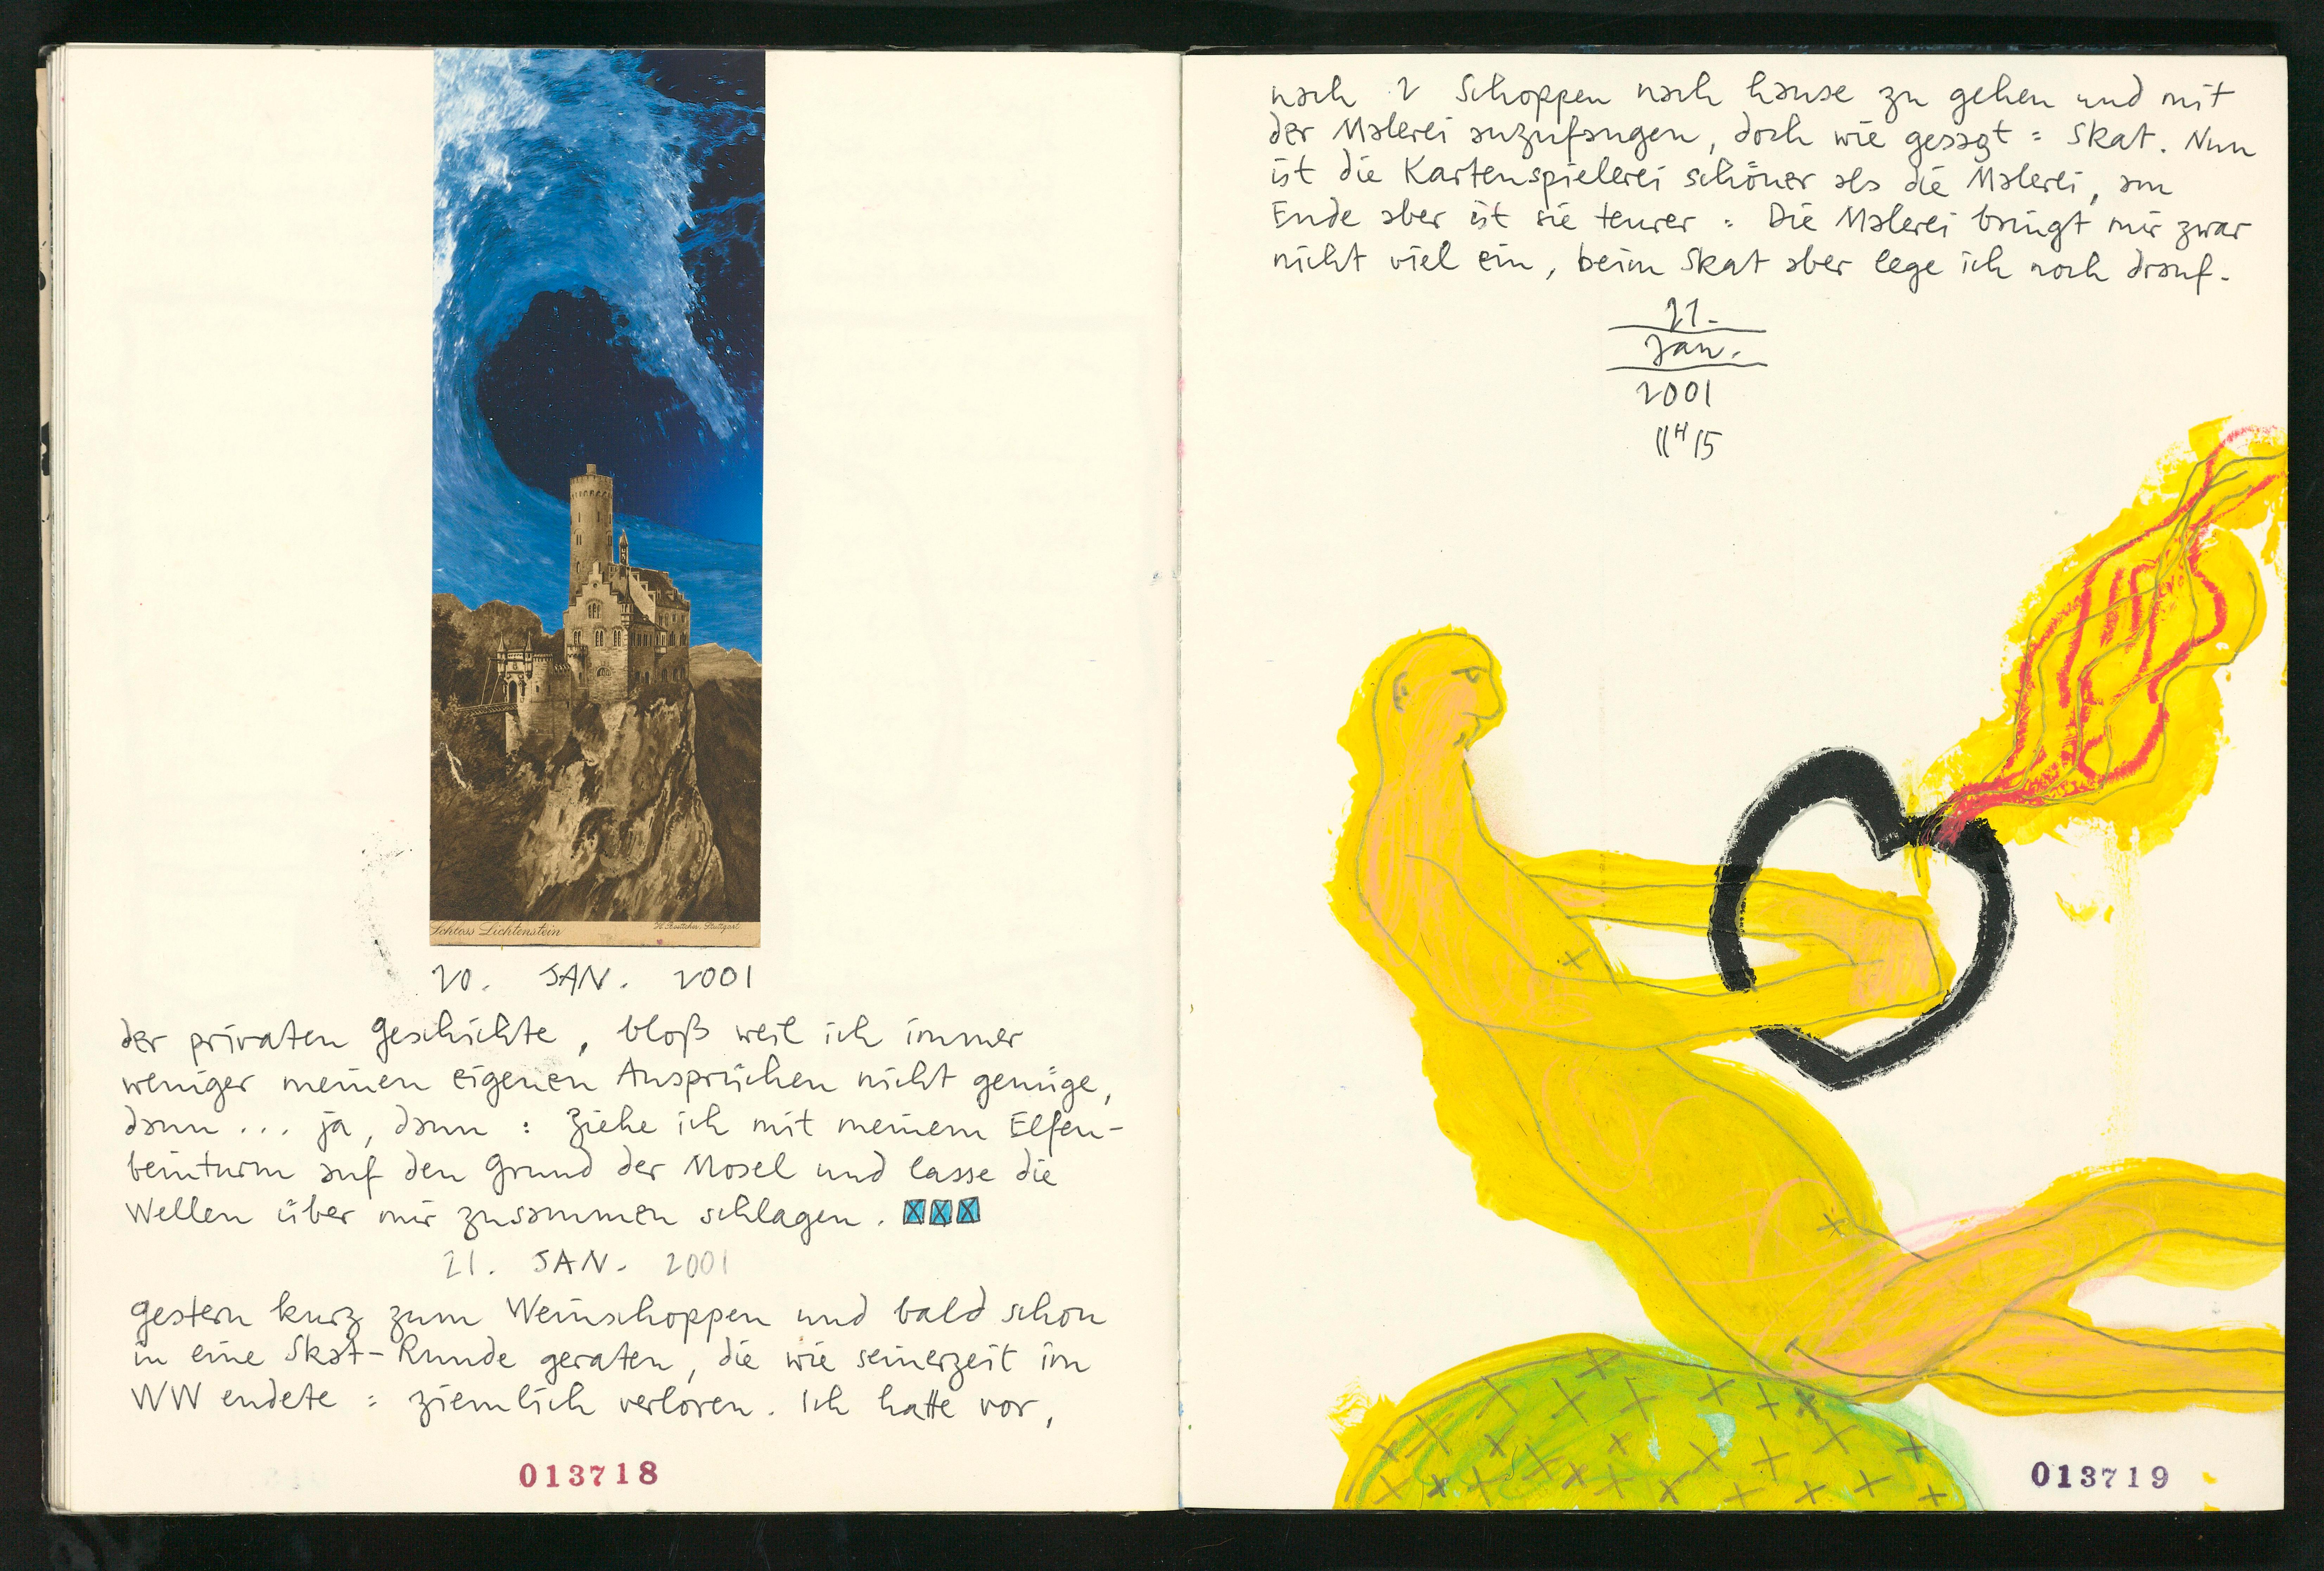 Schloss Lichtenstein
20. JAN. 2001
der privaten Geschichte, bloß weil ich immer
weniger meinen eigenen Ansprüchen nicht genüge,
dann... ja, dann : Ziehe ich mit meinem Elfen-
beinturm auf den Grund der Mosel und lasse die
Wellen über mir zusammen schlagen. XXX
21. JAN. 2001
gestern kurz zum Weinschoppen und bald schon
in eine Skat-Runde geraten, die wie seinerzeit im
WW endete : ziemlich verloren. Ich hatte vor,
013718
nach 2 Schoppen nach hause zu gehen und mit
der Malerei anzufangen, doch wie gesagt : Skat. Nun
ist die Kartenspielerei schöner als die Malerei, am
Ende aber ist sie teurer : Die Malerei bringt mir zwar
nicht viel ein, beim Skat aber lege ich noch drauf.
21.
Jan.
2001
11H15
013719